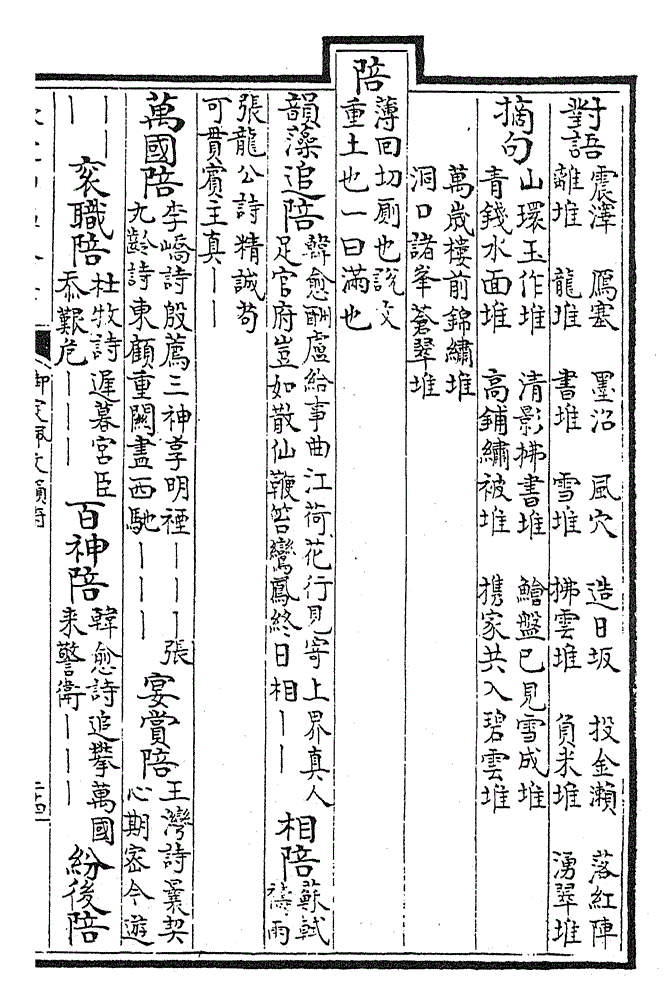 對語 震澤 鴈塞 墨沼 風穴 造日坂 投金瀨 落紅陣
離堆 龍堆 書堆 雪堆 拂雲堆 負米堆 湧翠堆
摘句 山環玉作堆 清影拂書堆 鱠盤已見雪成堆
青錢水面堆 高鋪繡被堆 携家共入碧雲堆
萬歲樓前錦繡堆
洞口諸峯蒼翠堆
陪 薄回切厠也説文
重土也一曰滿也
韻藻追陪 韓愈酬盧給事曲江荷花行見寄上界真人
足官府豈如散仙鞭笞鸞鳳終日相丨丨
相陪 蘇軾
禱雨
張龍公詩精誠苟
可貫賓主真丨丨
萬國陪 李嶠詩殷薦三神享明禋丨丨丨張
九齡詩東顧重關盡西馳丨丨丨
宴賞陪 王灣詩曩契
心期宻今遊
丨丨丨
衮職陪 杜牧詩遲暮宮臣
忝艱危丨丨丨
百神陪 韓愈詩追攀萬國
来警衛丨丨丨
紛後陪